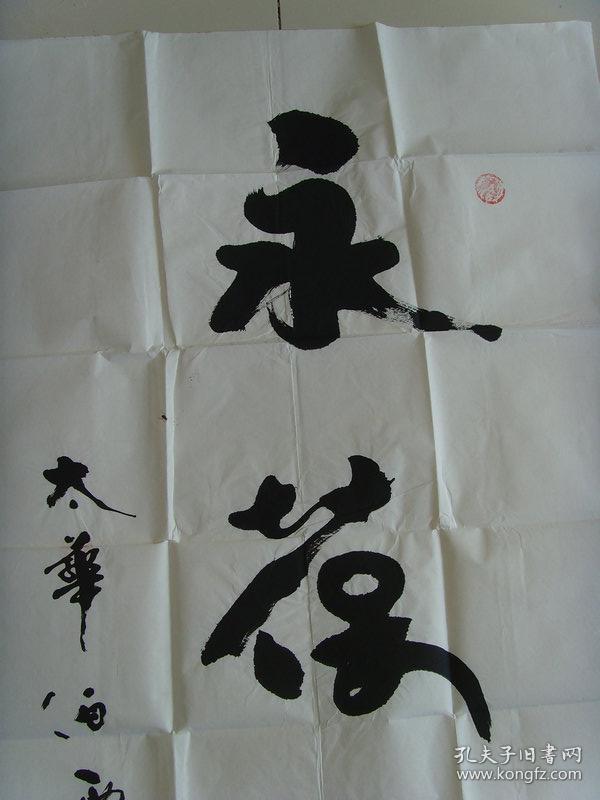 永葆
太華
孔夫子旧书网
www.kongfz.com